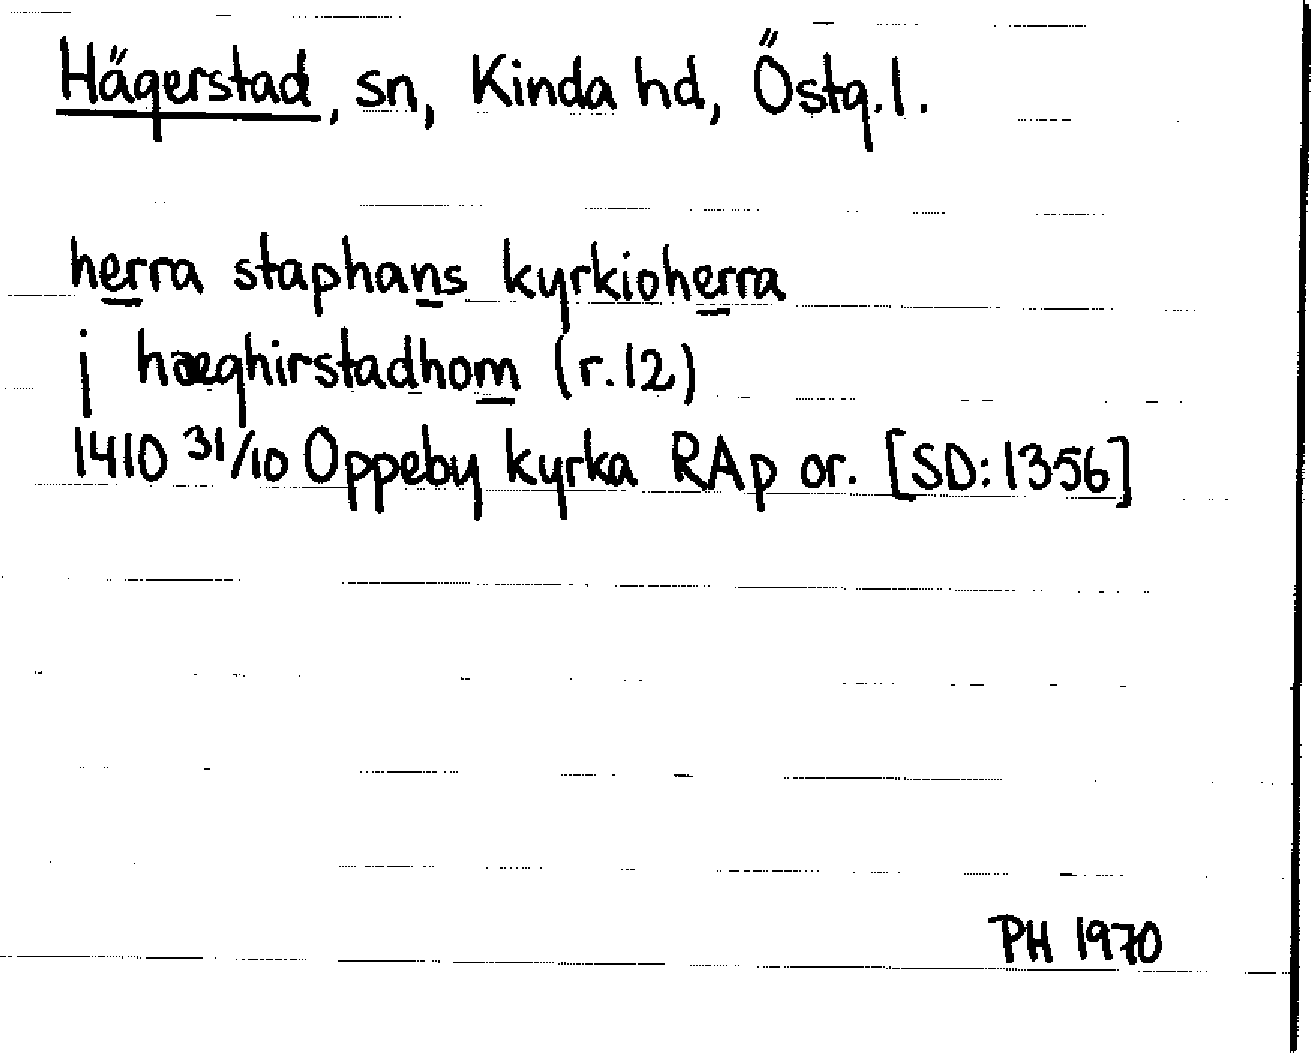 Hägerstad, sn, Kinda hd, Östg.l.
herra staphans kyrkioherra
j hæghirstadhom (r.12)
1410 31/10 Oppeby kyrka RAp or. [SD:1356]
PH 1970